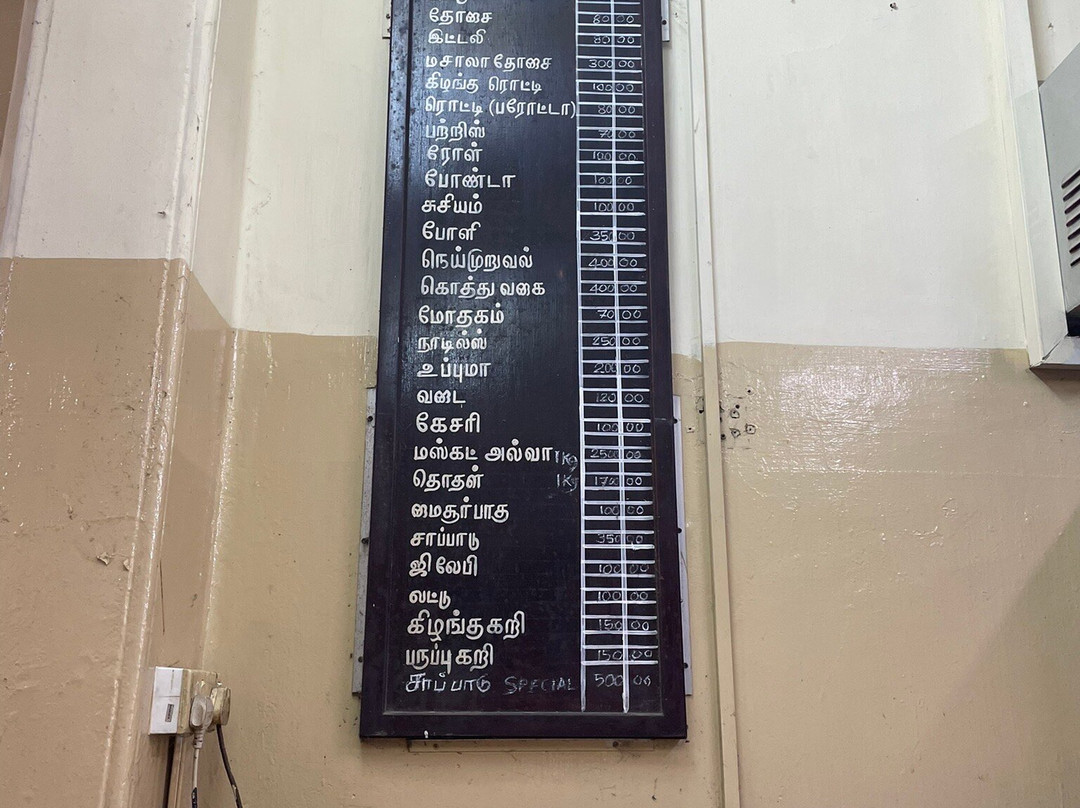 தோசை 80 00
இட்டலி 80 00
மசாலா தோசை 300 00
கிழங்கு ரொட்டி 100 00
ரொட்டி (பரோட்டா) 80 00
பற்றிஸ் 70 00
ரோள் 100 00
போண்டா 100 00
சுசியம் 100 00
போளி 350 00
நெய்முறுவல் 400 00
கொத்து வகை 400 00
மோதகம் 70 00
நூடில்ஸ் 250 00
உப்புமா 200 00
வடை 120 00
கேசரி 100 00
மஸ்கட் அல்வா 1Kg 2500 00
தொதள் 1Kg 1700 00
மைசூர்பாகு 100 00
சாப்பாடு 350 00
ஜிலேபி 100 00
லட்டு 100 00
கிழங்குகறி 150 00
பருப்புகறி 150 00
சாப்பாடு SPECIAL 500 00